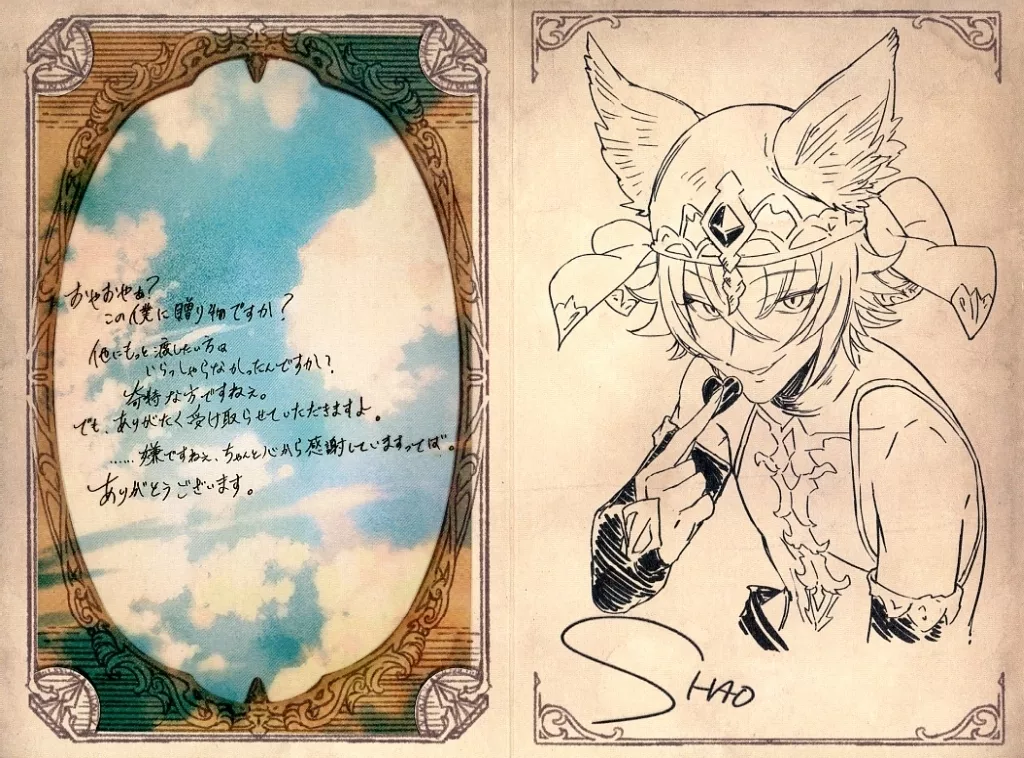 おやおやぁ?
この僕に贈り物ですか?
他にもっと渡したい方は
いらっしゃらなかったんですか?
奇特な方ですねぇ。
でも、ありがたく受け取らせていただきますよ。
……嫌ですねぇ、ちゃんと心から感謝していますってば。
ありがとうございます。
SHAO